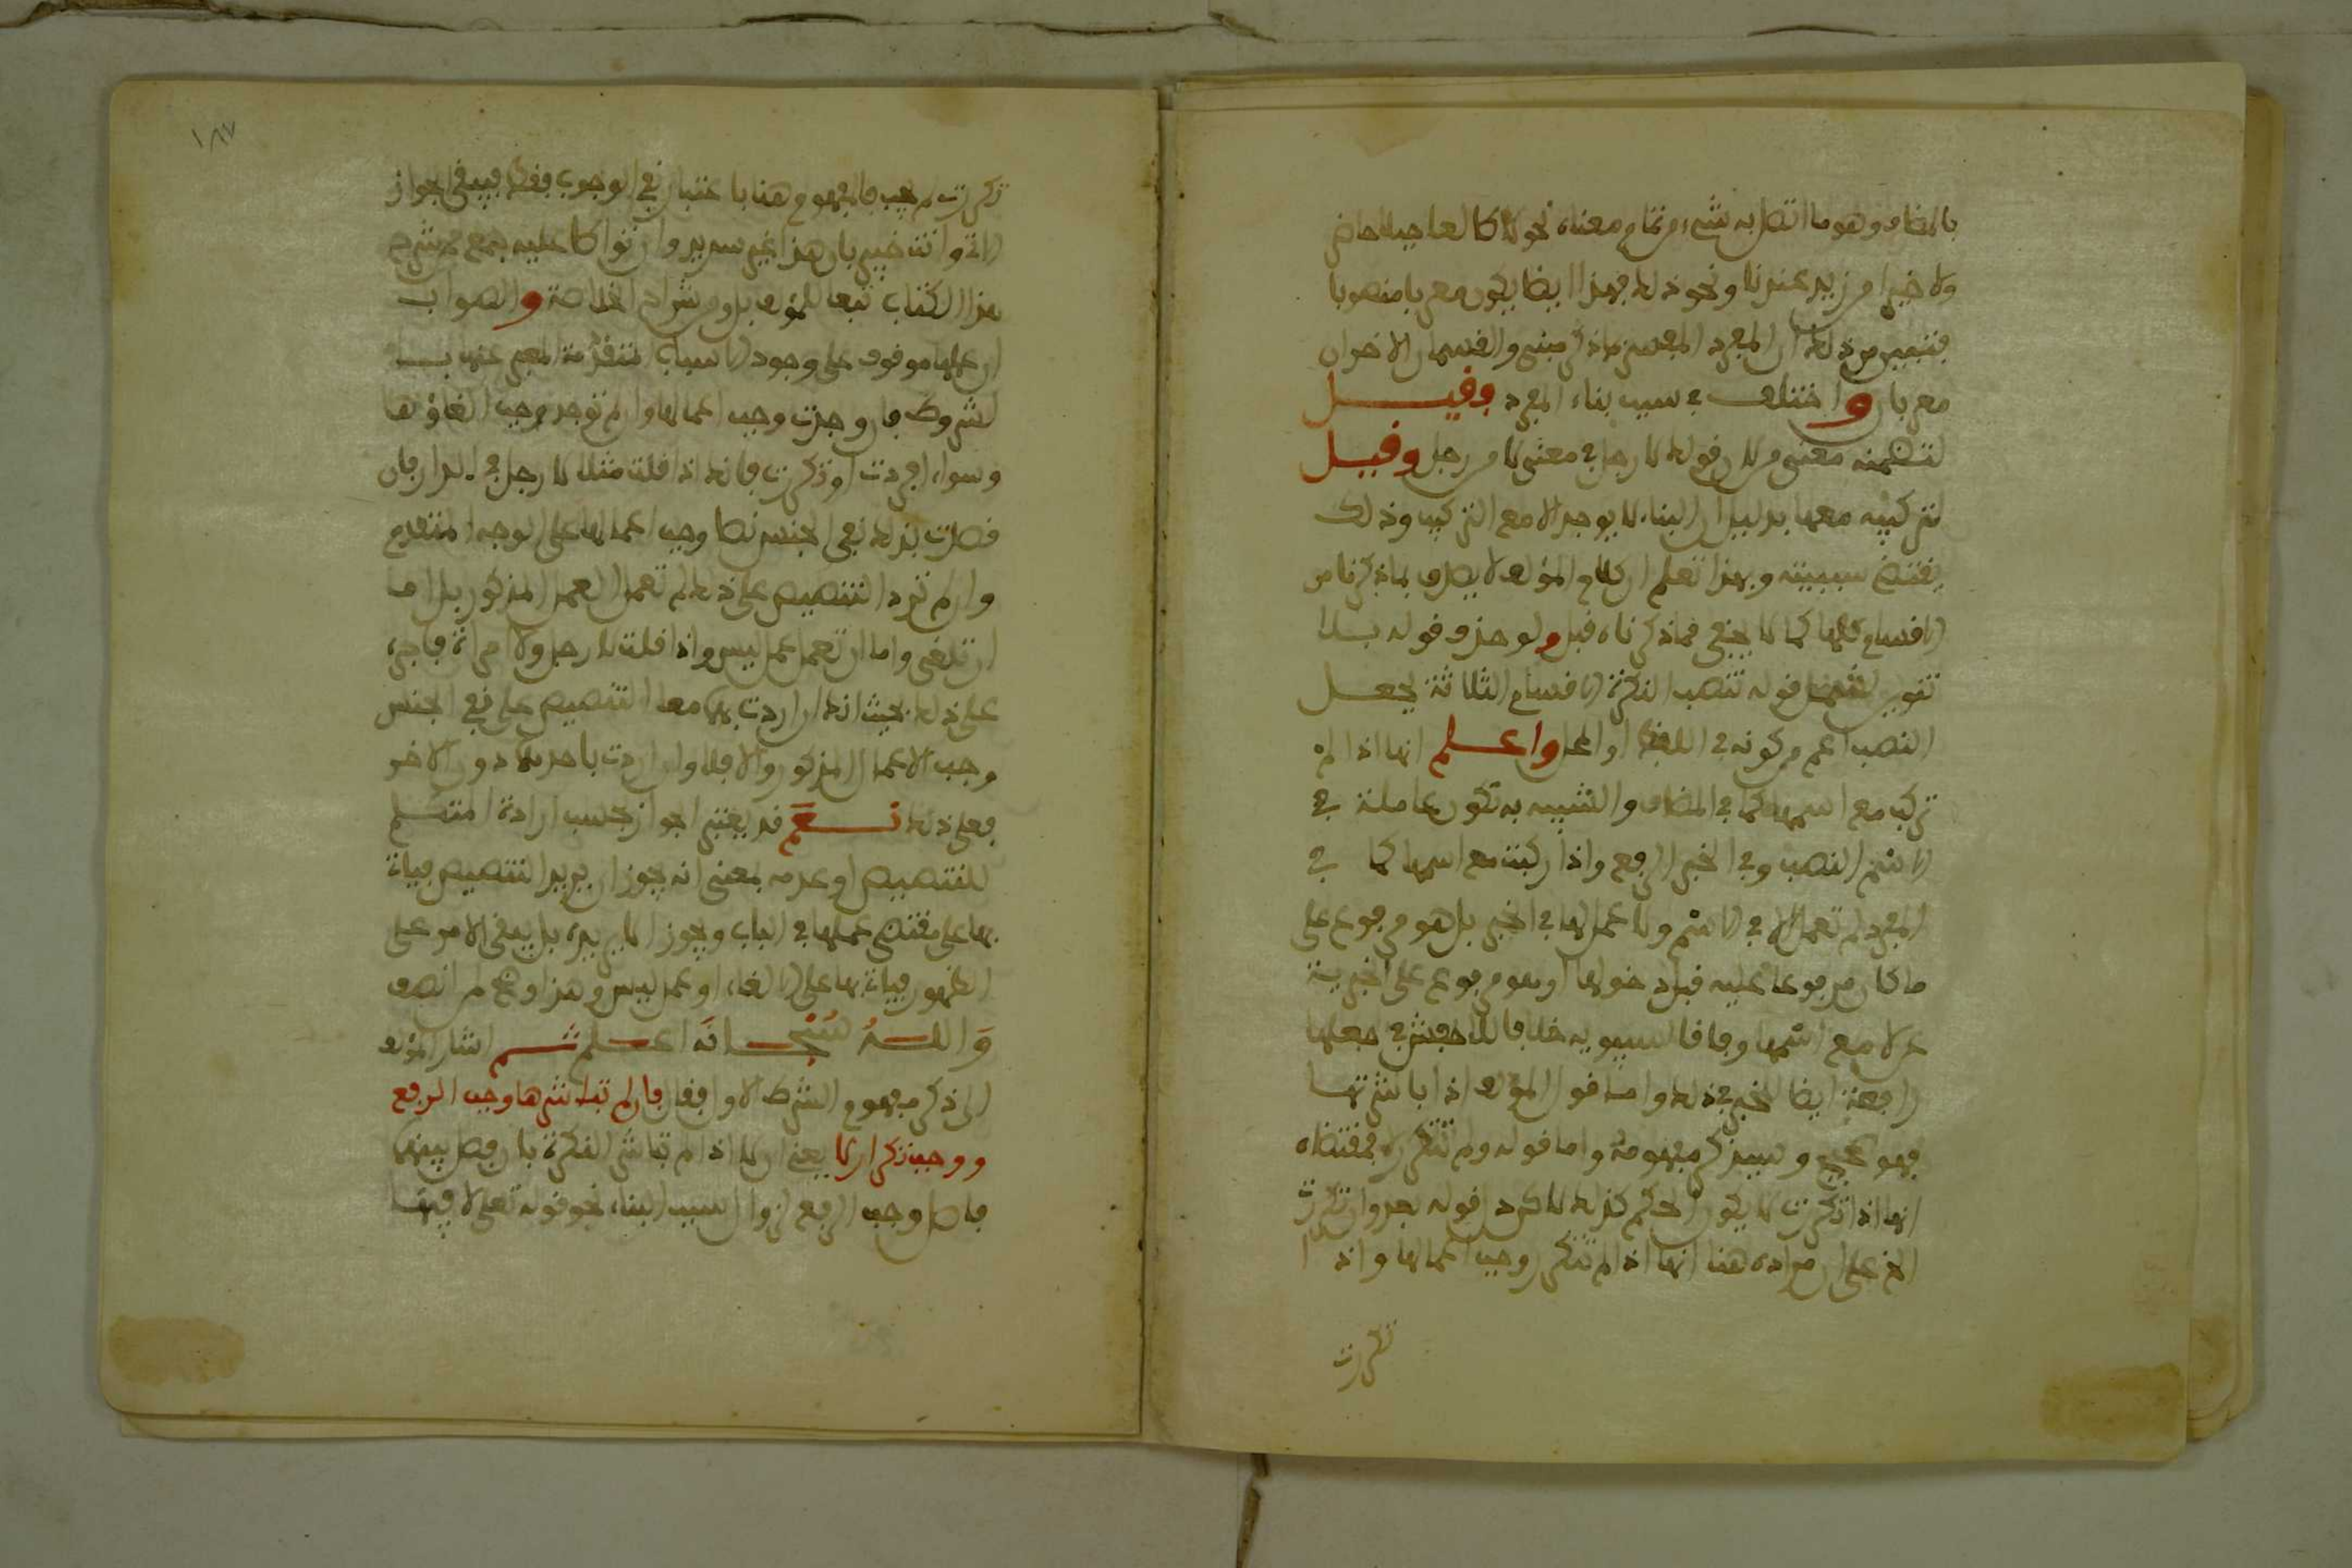 بالمضاف وهو ما اتصل به شيء من تمام معناه نحو لا طالعا جبلا حاضر
ولا خيرا من زيد عندنا ونحو ذلك فهذا ايضا يكون معربا منصوبا
فتبين من ذلك ان المفرد المفسر بما ذكر مبني والقسمان الاخران
معربان واختلف في سبب بناء المفرد فقيل
لتضمنه معنى من لان قولك لا رجل في معنى لا من رجل وقيل
لتركيبه معها بدليل ان البناء لا يوجد الا مع التركيب وذلك
يقتضي سببيته وبهذا تعلم ان كلام المؤلف لا يصدق بما ذكرنا من
الاقسام كلها كما لا يخفى مما ذكرناه قبل ولو حذف قوله بلا
تنوين لشمل قوله تنصب النكرة الاقسام الثلاثة بجعل
النصب اعم من كونه في اللفظ او المحل واعلم انها اذا لم
تركب مع اسمها كما في المضاف والشبيه به تكون عاملة في
الاسم النصب وفي الخبر الرفع واذا ركبت مع اسمها كما في
المفرد لم تعمل الا في الاسم ولا عمل لها في الخبر بل هو مرفوع على
ما كان مرفوعا عليه قبل دخولها او هو مرفوع على الخبرية
عن لا مع اسمها وفاقا لسيبويه خلافا للاخفش في جعلها
رافعة ايضا للخبر في ذلك واما قول المؤلف اذا باشرتها
فهو صحيح وسيذكر مفهومه واما قوله ولم تتكرر لا فمقتضاه
انها اذا تكررت لا يكون الحكم كذلك لاكن دل قوله بعد وان تكررت
الخ على ان مراده هنا انها اذا لم تتكرر وجب اعمالها واذا
تكررت
١٨٧
تكررت لم يجب فالمفهوم هنا باعتبار نفي الوجوب فقط فيبقى الجواز
وانت خبير بان هذا غير سديد وان تواطا عليه جمع من شرح
هذا الكتاب تبعا للمؤلف بل ومن شراح الخلاصة والصواب
ان عملها موقوف على وجود الاسباب المتقدمة المعبر عنها بــ
الشروط فان وجدت وجب اعمالها وان لم توجد وجب الغاؤها
وسواء افردت او تكررت فانك اذا قلت مثلا لا رجل في الدار فان
قصدت بذلك نفي الجنس نصا وجب اعمالها على الوجه المتقدم
وان لم ترد التنصيص على ذلك لم تعمل العمل المذكور بل اما
ان تلغى واما ان تعمل عمل ليس واذا قلت لا رجل ولا امراة فاجره
على ذلك بحيث انك ان اردت بهما معا التنصيص على نفي الجنس
وجب الاعمال المذكور والا فلا وان اردت باحديهما دون الاخر
فعلى ذلك نعم قد يعتبر الجواز بحسب ارادة المتكلم
للتنصيص او عدمه بمعنى انه يجوز ان يريد التنصيص فياتي
بها على مقتضى عملها في الباب ويجوز الا يريده بل يبقى الامر على
الظهور فياتي بها على الالغاء او عمل ليس وهذا واضح لمن انصف
وَاللهُ سُبْحَانَهُ اعلم ثم اشار المؤلف
الى ذكر مفهوم الشرط الاول فقال فان لم تباشرها وجب الرفع
ووجب تكرار لا يعني ان لا اذا لم تباشر النكرة بان فصل بينهما
فاصل وجب الرفع لزوال سبب البناء نحو قوله تعلى لا فيها